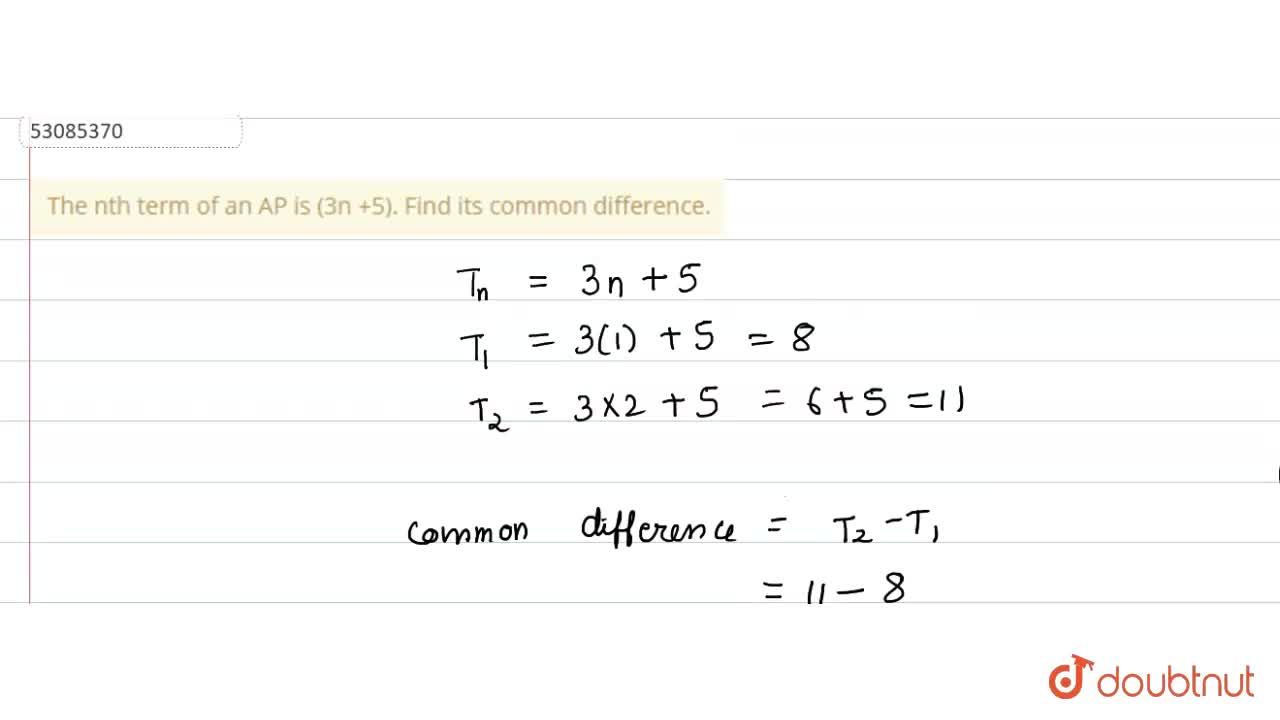 53085370
The nth term of an AP is (3n +5). Find its common difference.
Tn = 3n + 5
T1 = 3(1) + 5 = 8
T2 = 3×2 + 5 = 6 + 5 = 11
common difference = T2 - T1
= 11 - 8
doubtnut